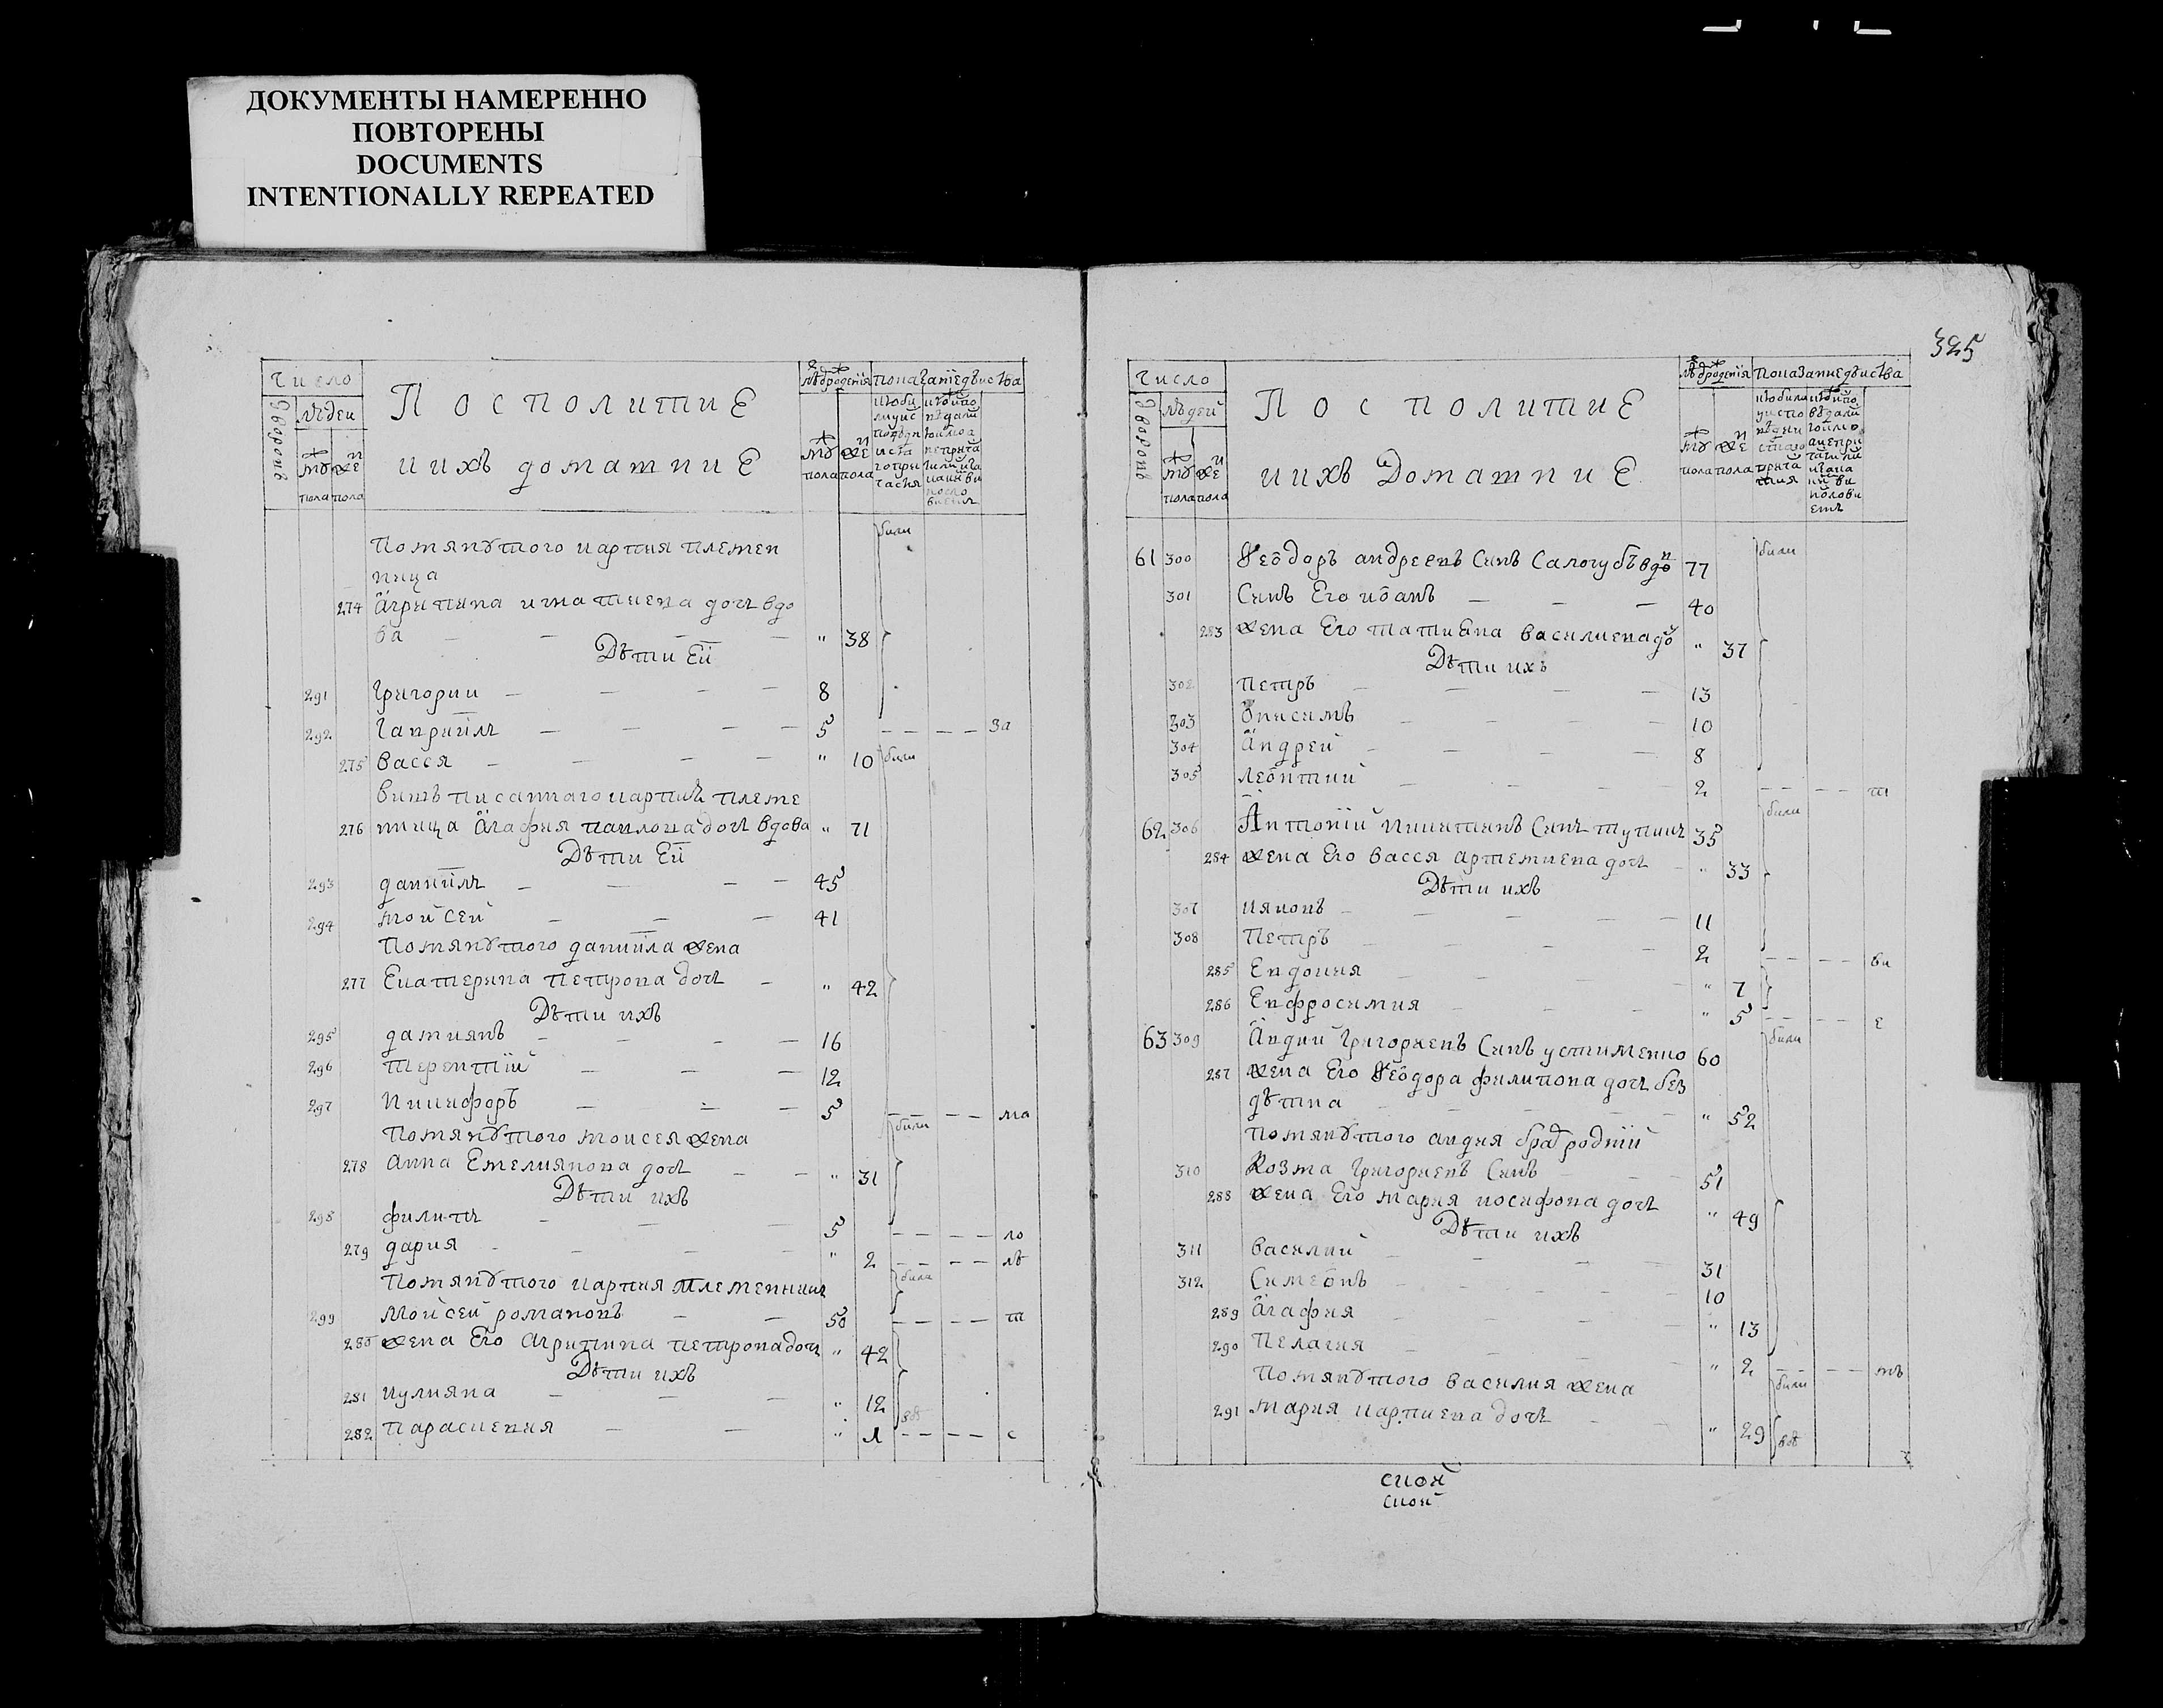 ДОКУМЕНТЫ НАМЕРЕННО
ПОВТОРЕНЫ
DOCUMENTS
INTENTIONALLY REPEATED
Число
людеи
дворовъ
муж
жен
пола пола
Посполитие
и ихъ домашние
пола пола
Помянутого карпия племен
ница
274 Агрипина игнатиева дочь вдо
ва " 38
были
Дѣти Ей
291 Григории 8
292 Гавриїлъ 5 за
275 Васся " 10 были
вишъ писанного карпия племе
276 нница Агафия павлова дочь вдова " 71
Дѣти Ей
293 даниилъ 45
294 моисей 41
Помянутого даниила жена
277 Екатерина петрова дочь " 42
Дѣти ихъ
295 дамиянъ 16
296 терентий 12
297 Никифоръ 5 ма
Помянутого моисея жена были
278 Анна Емелиянова дочь " 31
Дѣти ихъ
298 филипъ 5 ло
279 дария " 2 лѣ
Помянутого карпия племенникъ были
299 Моисей романовъ 50 т
280 жена Его Агрипина петрова дочь " 42
Дѣти ихъ
281 иулияна " 12
282 Параскевия " 1 с
325
Число
людей
дворовъ
муж жен
пола пола
Посполитие
и ихъ Домашние
пола пола
61 300 Феодоръ андреевъ Синъ Салогубъ вдо 77 были
301 Синъ Его иванъ 40
283 жена Его татияна василиева до " 37
Дѣти ихъ
302 Петръ 13
303 Онисимъ 10
304 Андрей 8
305 леонтий 2 т
62 306 Антоний никитинъ Синъ тупикъ 35 были
284 жена Его васся артемиева дочь " 33
Дѣти ихъ
307 ияковъ 11
308 Петръ 2 ви
285 Евдокия " 7
286 Евфросимия " 5 е
63 309 Авдий Григориевъ Синъ устименко 60 были
287 жена Его Феодора филипова дочь без
дѣтна " 52
помянутого авдия брат родний
310 Козма Григориевъ Синъ 51
288 жена Его мария иосифова дочь " 49
Дѣти ихъ
311 василий 31
312 Симеонъ 10
289 Агафия " 13
290 Пелагия " 2 мъ
Помянутого василия жена были
291 мария карпиева дочь " 29